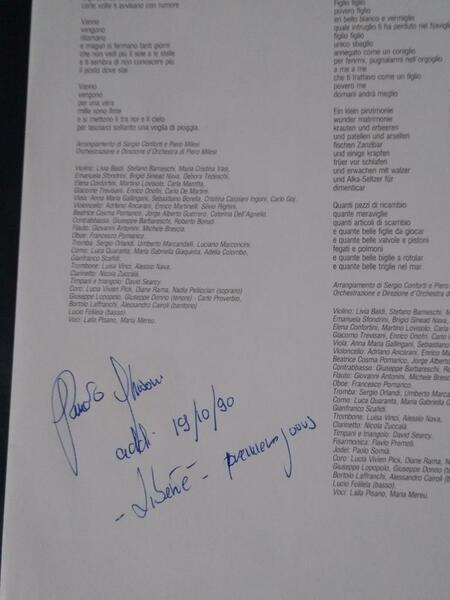 certe volte ti avvisano con rumore
Vanno
vengono
ritornano
e magari si fermano tanti giorni
che non vedi più il sole e le stelle
e ti sembra di non conoscere più
il posto dove stai
Vanno
vengono
per una vera
mille sono finte
e si mettono lì tra noi e il cielo
per lasciarci soltanto una voglia di pioggia.
Arrangiamento di Sergio Conforti e Piero Milesi
Orchestrazione e Direzione d'Orchestra di Piero Milesi
Violino: Livia Baldi, Stefano Barneschi, Maria Cristina Vasi,
Emanuela Sfondrini, Brigid Sinead Nava, Debora Tedeschi,
Elena Confortini, Martino Lovisolo, Carla Marotta,
Giacomo Trevisani, Enrico Onofri, Carlo De Martini.
Viola: Anna Maria Gallingani, Sebastiano Borella, Cristina Cassiani Ingoni, Carlo Goj.
Violoncello: Adriano Ancarani, Enrico Martinelli, Silvio Righini,
Beatrice Cosma Pomarico, Jorge Alberto Guerrero, Caterina Dell'Agnello.
Contrabbasso: Giuseppe Barbareschi, Roberto Bonati.
Flauto: Giovanni Antonini, Michele Brescia.
Oboe: Francesco Pomarico.
Tromba: Sergio Orlandi, Umberto Marcandalli, Luciano Marconcini.
Corno: Luca Quaranta, Maria Gabriella Giaquinta, Adelia Colombo,
Gianfranco Scafidi.
Trombone: Luisa Vinci, Alessio Nava.
Clarinetto: Nicola Zuccalà.
Timpani e triangolo: David Searcy.
Coro: Lucia Vivien Pick, Diane Rama, Nadia Pellicciari (soprano)
Giuseppe Lopopolo, Giuseppe Donno (tenore) - Carlo Proverbio,
Bortolo Laffranchi, Alessandro Cairoli (baritono)
Lucio Folilela (basso).
Voci: Lalla Pisano, Maria Mereu.
addì 19/10/90
Figlio figlio
povero figlio
eri bello bianco e vermiglio
quale intruglio ti ha perduto nel Naviglio
figlio figlio
unico sbaglio
annegato come un coniglio
per ferirmi, pugnalarmi nell'orgoglio
a me a me
che ti trattavo come un figlio
povero me
domani andrà meglio
Ein klein pinzimonie
wunder matrimonie
krauten und erbeeren
und patellen und arsellen
fischen Zanzibar
und einige krapfen
früer vor schlafen
und erwachen mit walzer
und Alka-Seltzer für
dimenticar
Quanti pezzi di ricambio
quante meraviglie
quanti articoli di scambio
e quante belle figlie da giocar
e quante belle valvole e pistoni
fegati e polmoni
e quante belle biglie a rotolar
e quante belle triglie nel mar.
Arrangiamento di Sergio Conforti e Piero
Orchestrazione e Direzione d'Orchestra di
Violino: Livia Baldi, Stefano Barneschi, M
Emanuela Sfondrini, Brigid Sinead Nava,
Elena Confortini, Martino Lovisolo, Carla
Giacomo Trevisani, Enrico Onofri, Carlo
Viola: Anna Maria Gallingani, Sebastiano
Violoncello: Adriano Ancarani, Enrico Mar
Beatrice Cosma Pomarico, Jorge Alberto
Contrabbasso: Giuseppe Barbareschi, Ro
Flauto: Giovanni Antonini, Michele Bresc
Oboe: Francesco Pomarico.
Tromba: Sergio Orlandi, Umberto Marcan
Corno: Luca Quaranta, Maria Gabriella G
Gianfranco Scafidi.
Trombone: Luisa Vinci, Alessio Nava.
Clarinetto: Nicola Zuccalà.
Timpani e triangolo: David Searcy.
Fisarmonica: Flavio Premoli.
Jodel: Paolo Somià.
Coro: Lucia Vivien Pick, Diane Rama, N
Giuseppe Lopopolo, Giuseppe Donno (te
Bortolo Laffranchi, Alessandro Cairoli (b
Lucio Folilela (basso).
Voci: Lalla Pisano, Maria Mereu.